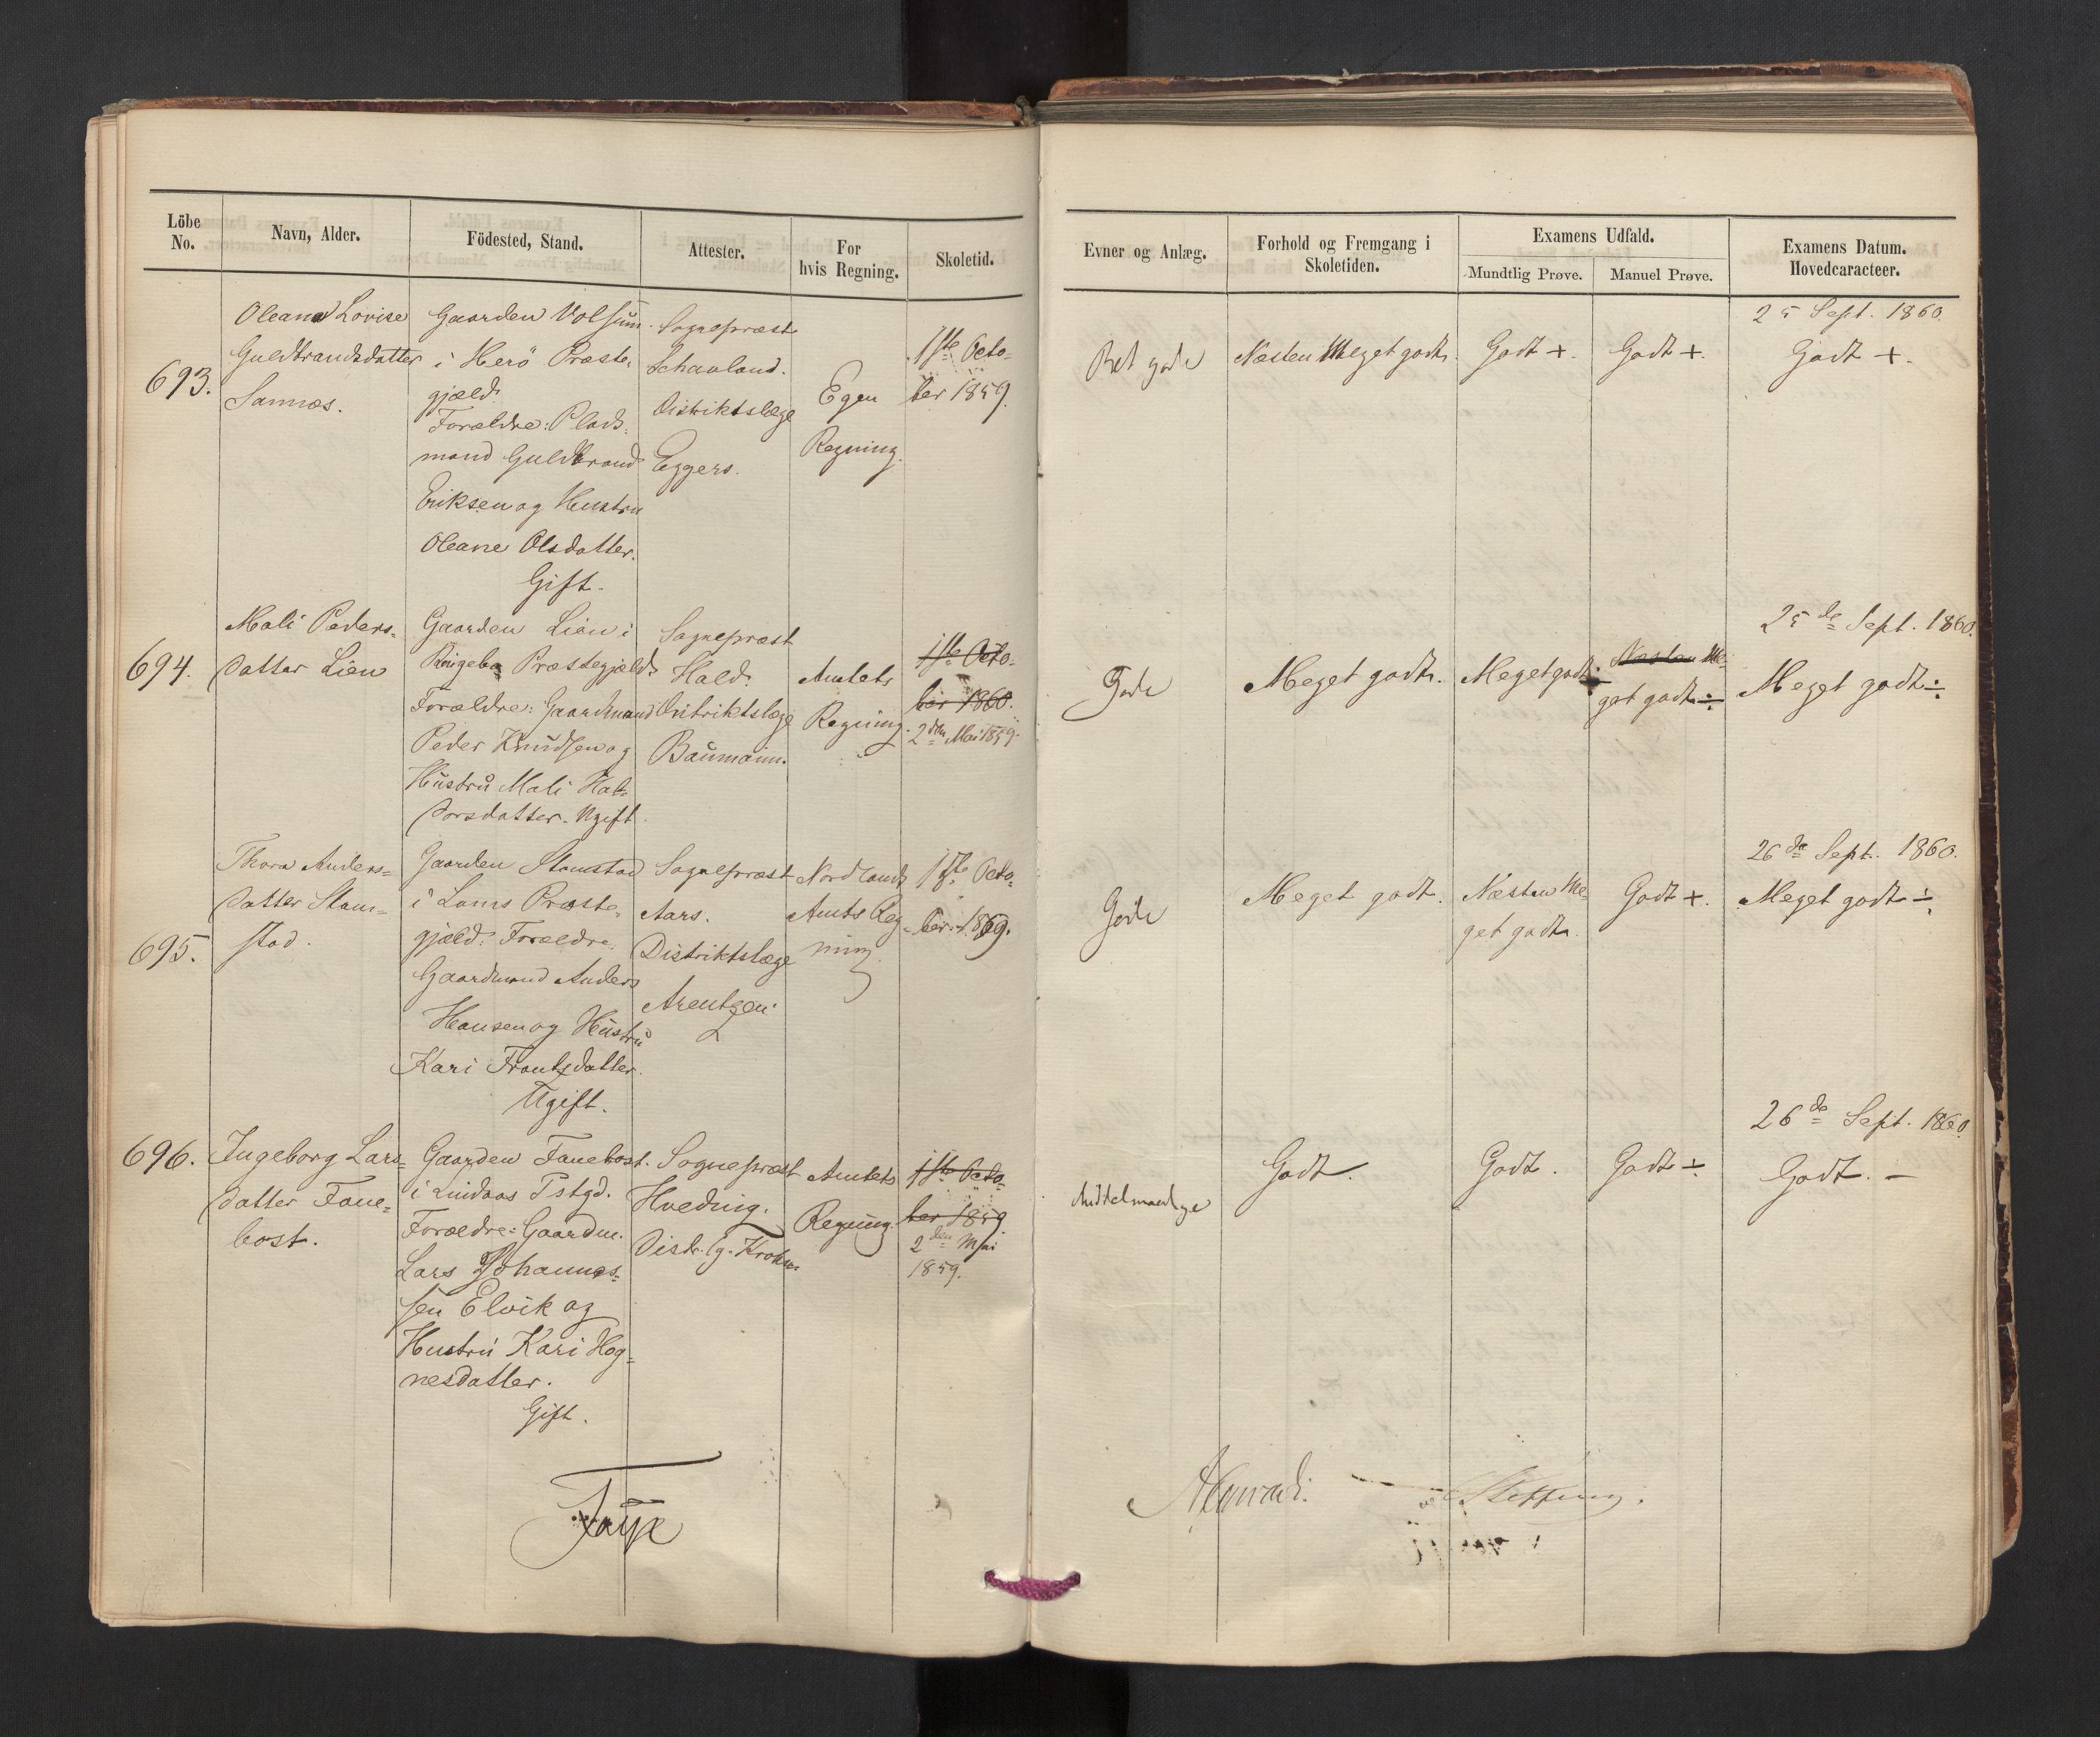 Löbe No.
Navn, Alder.
Födested, Stand.
Attester.
For hvis Regning.
Skoletid.
Evner og Anlæg.
Forhold og Fremgang i Skoletiden.
Examens Udfald.
Mundtlig Prøve.
Manuel Prøve.
Examens Datum.
Hovedcaracteer.
693.
Oleana Lovise
Guldbrandsdatter
Sannæs.
Gaarden Volsum
i Herö Præste-
gjeld.
Forældre: Plads-
mand Guldbrand
Eriksen og Hustru
Oleane Olsdatter.
Gift.
Sognepræst
Schaoland.
Distriktslæge
Eggers.
Egen
Regning.
1ste Octo-
ber 1859.
Ret gode
Næsten Meget godt.
Godt +.
Godt +.
25 Sept. 1860.
Godt +.
694.
Mali Peders-
datter Lien
Gaarden Lien i
Ringebo Præstegjæld.
Forældre: Gaardmand
Peder Knudsen og
Hustru Mali Hal-
vorsdatter. Ugift
Sognepræst
Hald.
Distriktslæge
Baumann.
Amtets
Regning.
1ste Octo-
ber 1860.
2den Mai 1859.
Gode
Meget godt.
Meget godt.
Næsten Me-
get godt ÷
25de Sept. 1860.
Meget godt ÷
695.
Thora Anders-
datter Stam-
stad.
Gaarden Stamstad
i Loms Præste-
gjæld. Forældre:
Gaardmand Anders
Hansen og Hustru
Kari Frantsdatter.
Ugift.
Sognepræst
Aars.
Distriktslæge
Arentzen.
Nordlands
Amts Reg-
ning.
1ste Octo-
ber 1859.
Gode
Meget godt.
Næsten Me-
get godt.
Godt +.
26de Sept. 1860.
Meget godt ÷
696.
Ingeborg Lars-
datter Fane-
bost.
Gaarden Fanebost.
i Lindaas Pstgd.
Forældre: Gaardm.
Lars Johannes-
sen Elvik og
Hustru Kari Hog-
nesdatter.
Gift.
Sognepræst
Hveding.
Distr. lg. Krohn
Amtets
Regning.
1ste Octo-
ber 1859
2den Mai
1859.
Middelmaadige
Godt.
Godt.
Godt ÷
26de Sept. 1860.
Godt. –
Faye